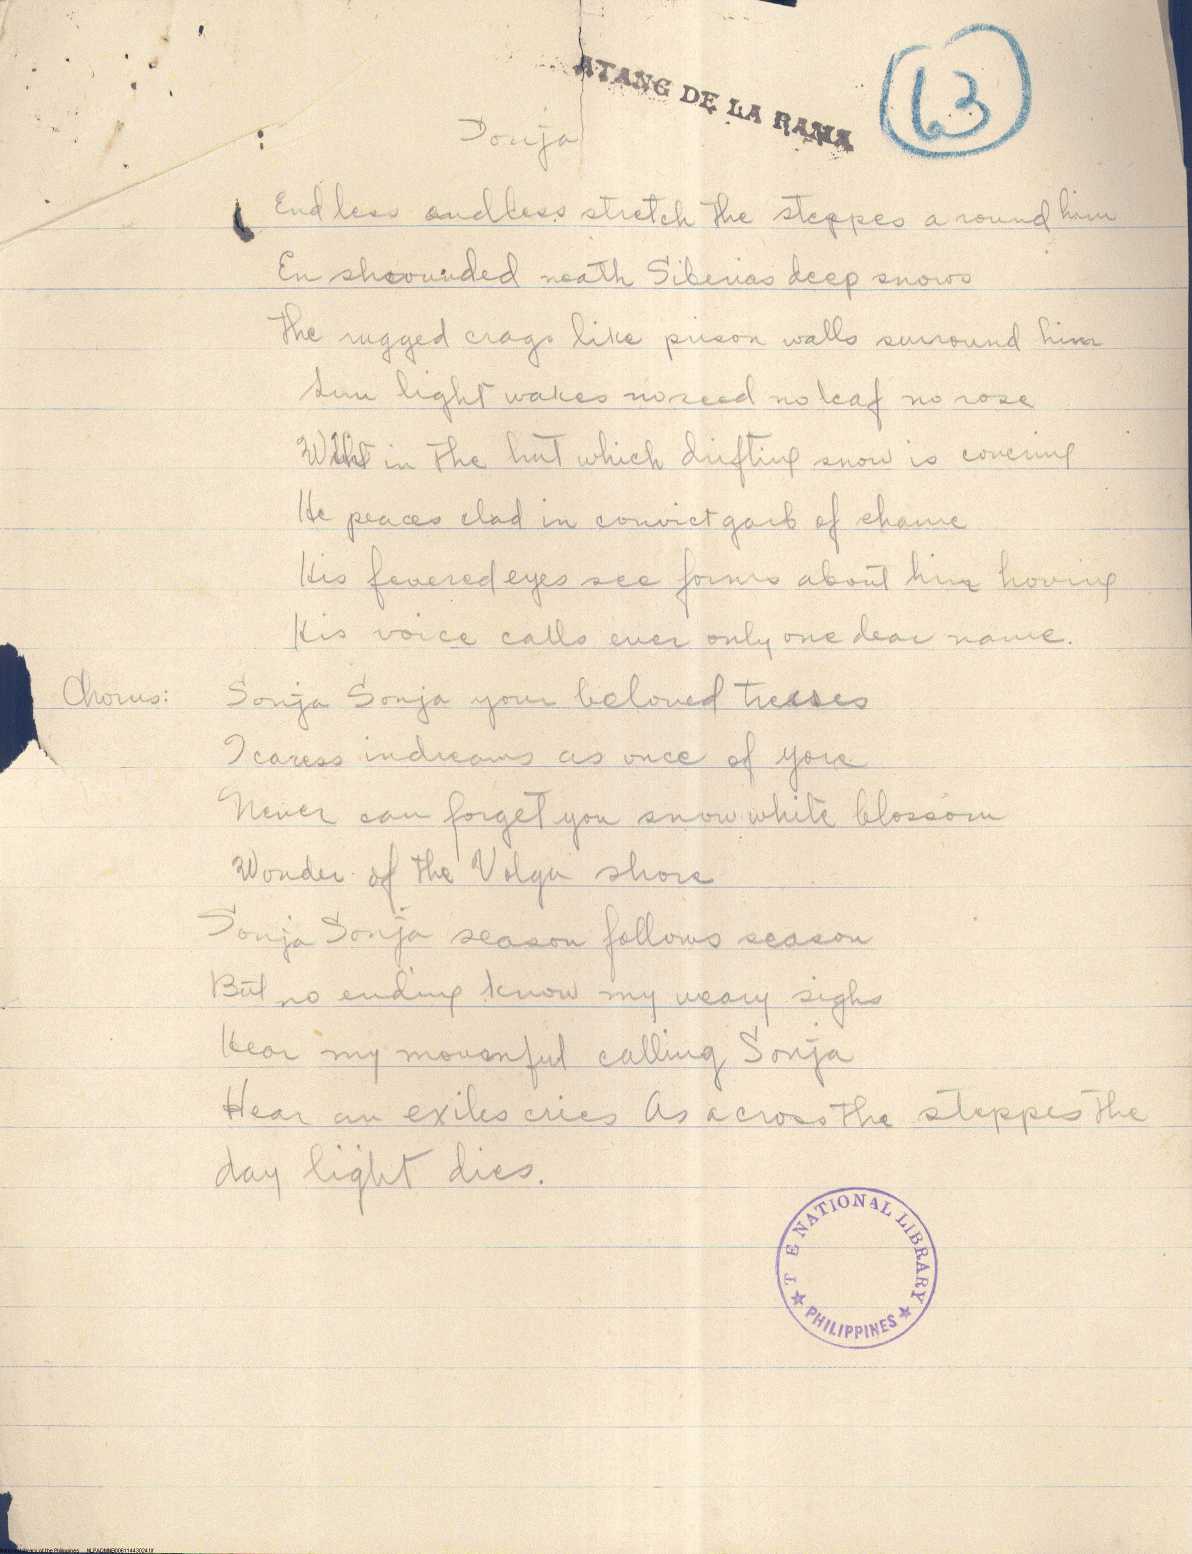 ATANG DE LA RAMA
63
Sonja
Endless endless stretch the steppes around him
En shrounded neath Siberias deep snows
The rugged crags like prison walls surround him
Sun light wakes no seed no leaf no rose
in the hut which drifting snow is covering
He peaces clad in convict garb of shame
His fevered eyes see forms about him hoving
His voice calls ever only one dear name.
Chorus: Sonja Sonja your beloved tresses
I caress in dreams as once of yore
Never can forget you snow white blossom
Wonder of the Volga shore
Sonja Sonja season follows season
But no ending know my weary sighs
Hear my mournful calling Sonja
Hear an exiles cries As across the steppes the
day light dies.
T E NATIONAL LIBRARY
PHILIPPINES